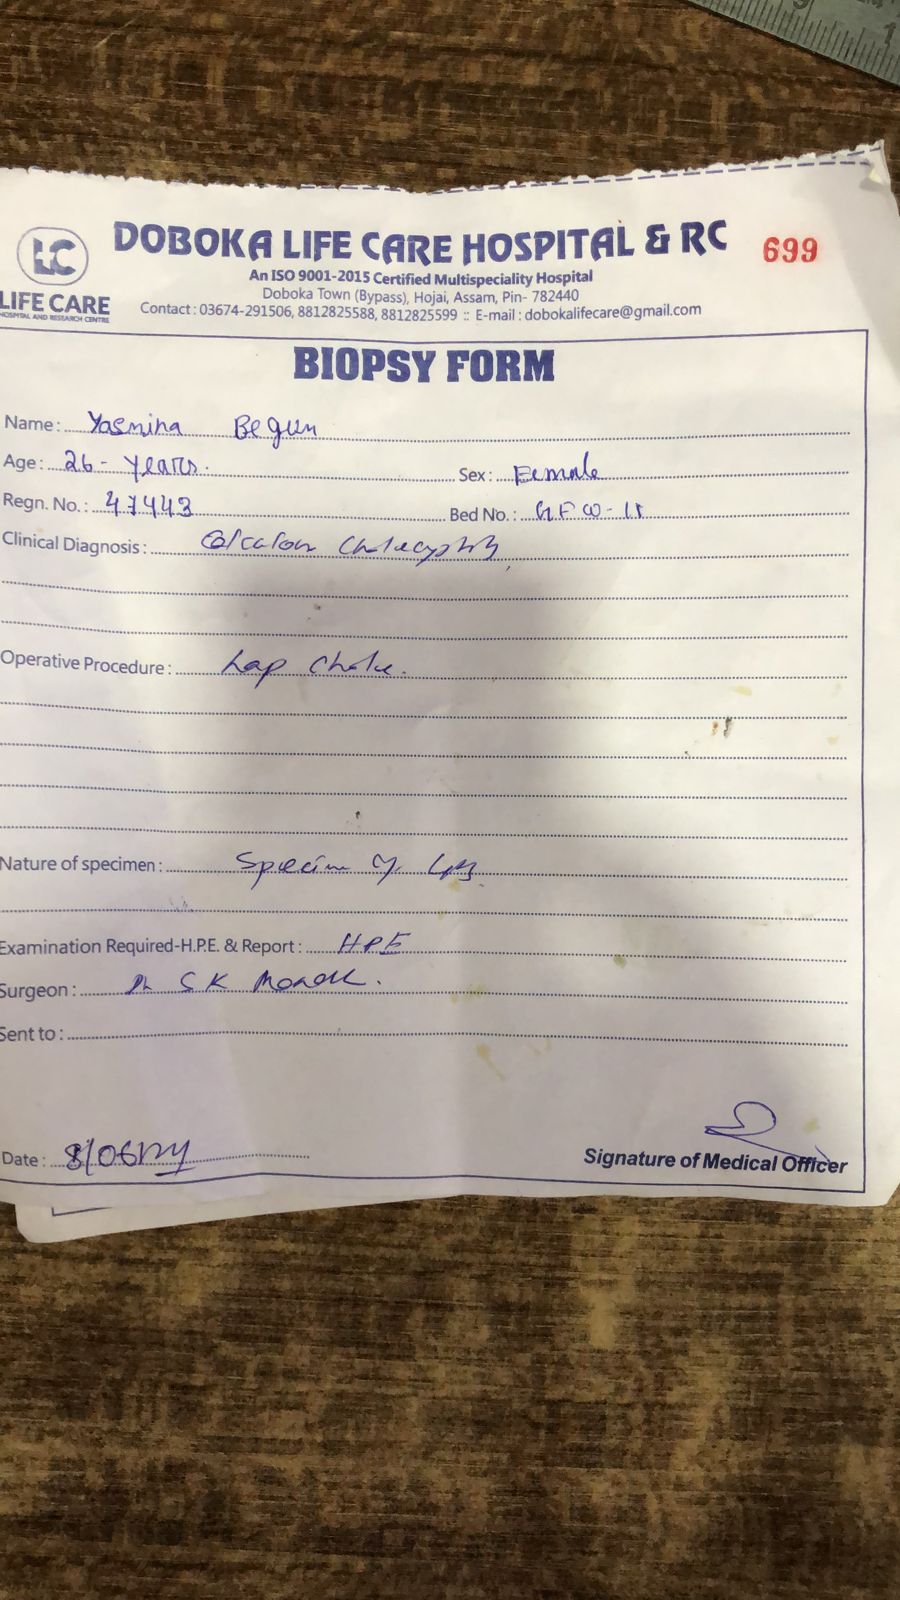 DOBOKA LIFE CARE HOSPITAL & RC
699
LC
LIFE CARE
HOSPITAL AND RESEARCH CENTRE
An ISO 9001-2015 Certified Multispeciality Hospital
Doboka Town (Bypass), Hojai, Assam, Pin- 782440
Contact : 03674-291506, 8812825588, 8812825599 :: E-mail : dobokalifecare@gmail.com
BIOPSY FORM
Name: Yasmina Begum
Age: 26- years.
Sex: Female
Regn. No.: 47443
Bed No.: GFW-
Clinical Diagnosis:
Operative Procedure: Lap Chole.
Nature of specimen: Specimen of
Examination Required-H.P.E. & Report: HPE
Surgeon: Dr S K
Sent to:
Date: 8/06/24
Signature of Medical Officer